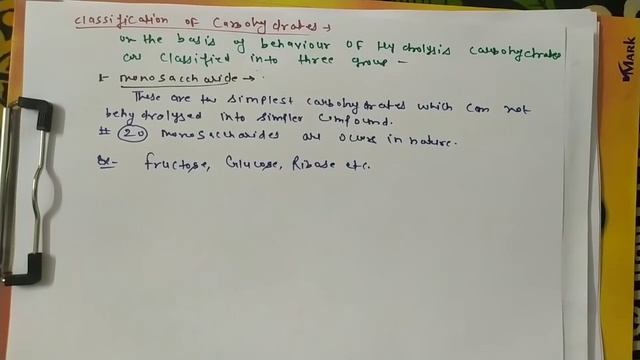 classification of Carbohydrates →
on the basis of behaviour OF Hydrolysis carbohydrates
are classified in to three group -
1- monosaccharide →
These are the simplest carbohydrates which can not
be hydrolysed into simpler compound.
# 20 monosaccharides are ocurs in nature.
Ex- fructose, Glucose, Ribose etc.
MARK